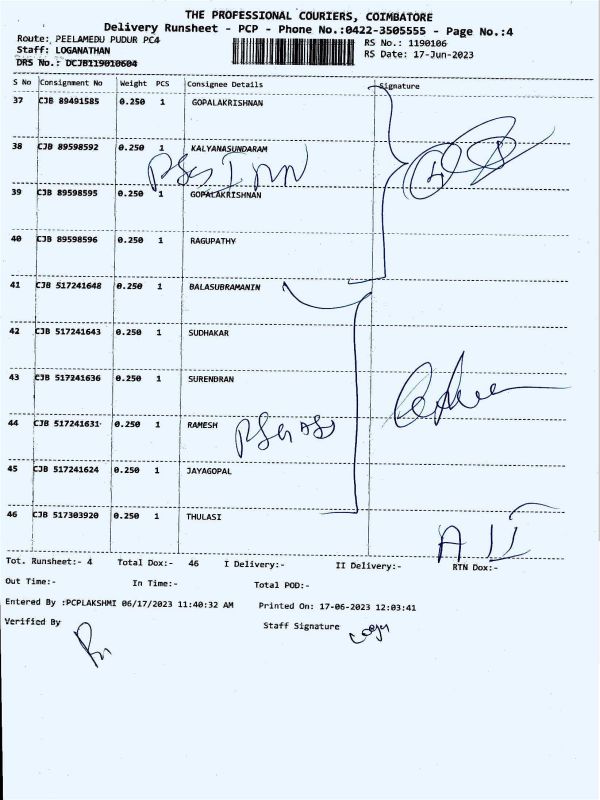 THE PROFESSIONAL COURIERS, COIMBATORE
Delivery Runsheet - PCP - Phone No.:0422-3505555 - Page No.:4
Route: PEELAMEDU PUDUR PC4 RS No.: 1190106
Staff: LOGANATHAN RS Date: 17-Jun-2023
DRS No.: DCJB119010604
S No Consignment No Weight PCS Consignee Details Signature
37 CJB 89491585 0.250 1 GOPALAKRISHNAN
38 CJB 89598592 0.250 1 KALYANASUNDARAM
39 CJB 89598595 0.250 1 GOPALAKRISHNAN
40 CJB 89598596 0.250 1 RAGUPATHY
41 CJB 517241648 0.250 1 BALASUBRAMANIN
42 CJB 517241643 0.250 1 SUDHAKAR
43 CJB 517241636 0.250 1 SURENDRAN
44 CJB 517241631 0.250 1 RAMESH
45 CJB 517241624 0.250 1 JAYAGOPAL
46 CJB 517303920 0.250 1 THULASI
Tot. Runsheet:- 4 Total Dox:- 46 I Delivery:- II Delivery:- RTN Dox:-
Out Time:- In Time:- Total POD:-
Entered By :PCPLAKSHMI 06/17/2023 11:40:32 AM Printed On: 17-06-2023 12:03:41
Verified By Staff Signature